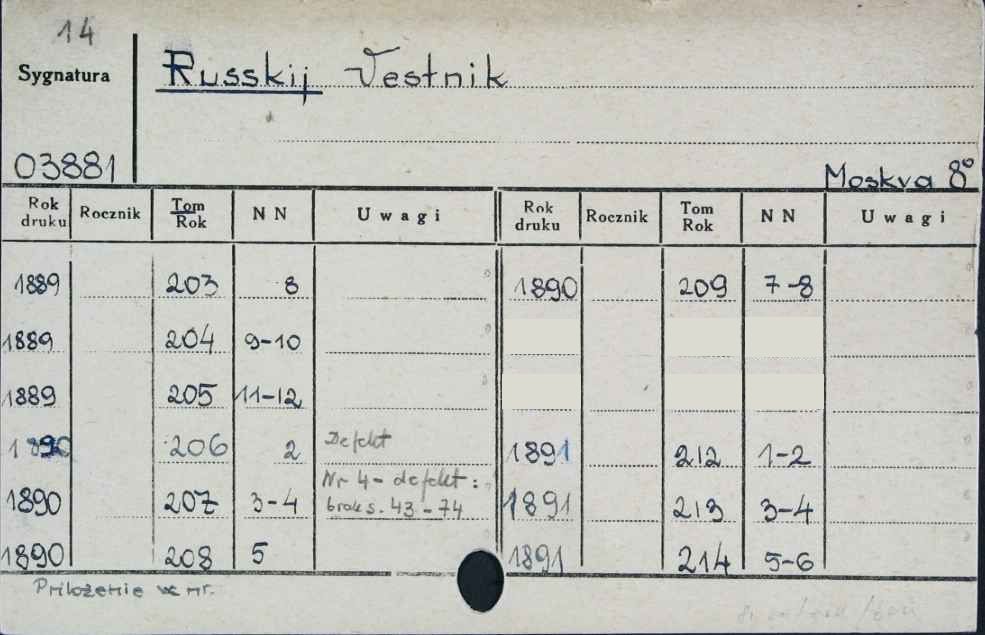 14
Sygnatura
Russkij Vestnik
03881
Moskva 8°
Rok druku Rocznik Tom Rok NN Uwagi
1889 203 8
1889 204 9-10
1889 205 11-12
1890 206 2 Defekt
1890 207 3-4 Nr 4 - defekt:
brak s. 43-74
1890 208 5
Rok druku Rocznik Tom Rok NN Uwagi
1890 209 7-8
1891 212 1-2
1891 213 3-4
1891 214 5-6
Priloženie w nr.